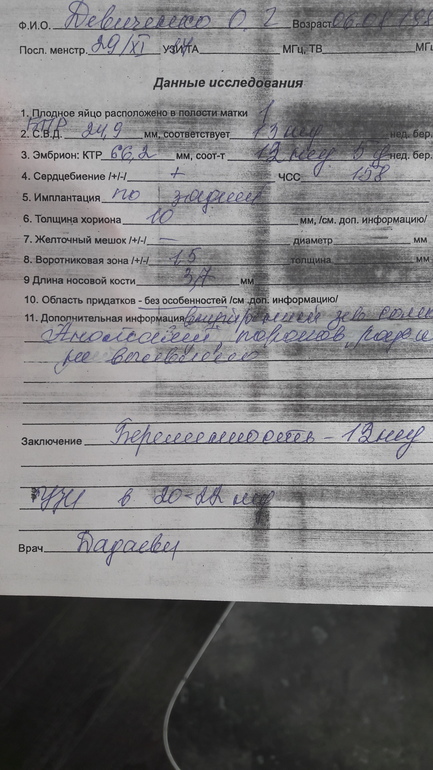 Ф.И.О. Девиченко О. Г. Возраст 06.01.198
Посл. менстр. 29/XI УЗИ/ТА МГц, ТВ МГц
Данные исследования
1. Плодное яйцо расположено в полости матки 1
БПР
2. С.В.Д. 24,9 мм, соответствует 13 нед нед. бер.
3. Эмбрион: КТР 66,2 мм, соот-т 12 нед 5 д нед. бер.
4. Сердцебиение /+/-/ + ЧСС 158
5. Имплантация по задней
6. Толщина хориона 10 мм, /см. доп. информацию/
7. Желточный мешок /+/-/ — диаметр мм
8. Воротниковая зона /+/-/ 1,5 толщина мм
9 Длина носовой кости 3,7 мм
10. Область придатков - без особенностей /см .доп. информацию/
11. Дополнительная информация внутренний зев
Аномалий, пороков
не выявлено
Заключение Беременность - 13 нед
УЗИ в 20-22 нед
Врач